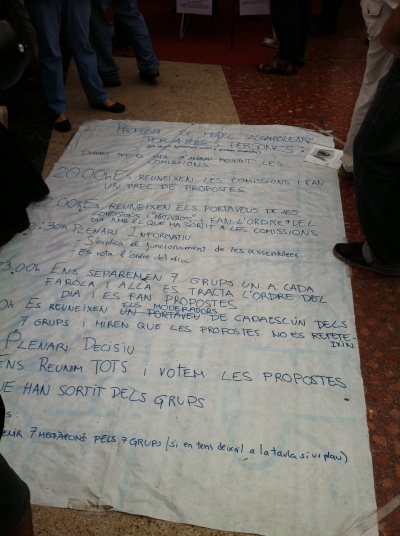 PROPOSTA DE MODEL ASSAMBLEARI
PER A MILERS PERSONES:
DURANT TOT EL DIA S'ANIRAN REUNINT LES
COMISSIONS
20:00h ES REUNEIXEN LES COMISSIONS I FAN
UN PREC DE PROPOSTES
2:00h ES REUNEIXEN ELS PORTAVEUS DE LES
COMISSIONS I FAN L'ORDRE DEL
DIA AMB EL QUE HA SORTIT A LES COMISSIONS
:30h PLENARI INFORMATIU
S'explica el funcionament de les assamblees
Es vota l'ordre del dia
3:00h ENS SEPAREM EN 7 GRUPS UN A CADA
FAROLA I ALLÀ ES TRACTA L'ORDRE DEL
DIA I ES FAN PROPOSTES
ELS MODERADORS
0h ES REUNEIXEN UN PORTAVEU DE CADAESCÚN DELS
7 GRUPS I MIREN QUE LES PROPOSTES NO ES REPETEI
XIN
PLENARI DECISIU
ENS REUNIM TOTS I VOTEM LES PROPOSTES
UE HAN SORTIT DELS GRUPS
S:
ENIR 7 MEGÀFONS PELS 7 GRUPS (si en tens deixa'l a la taula si us plau)